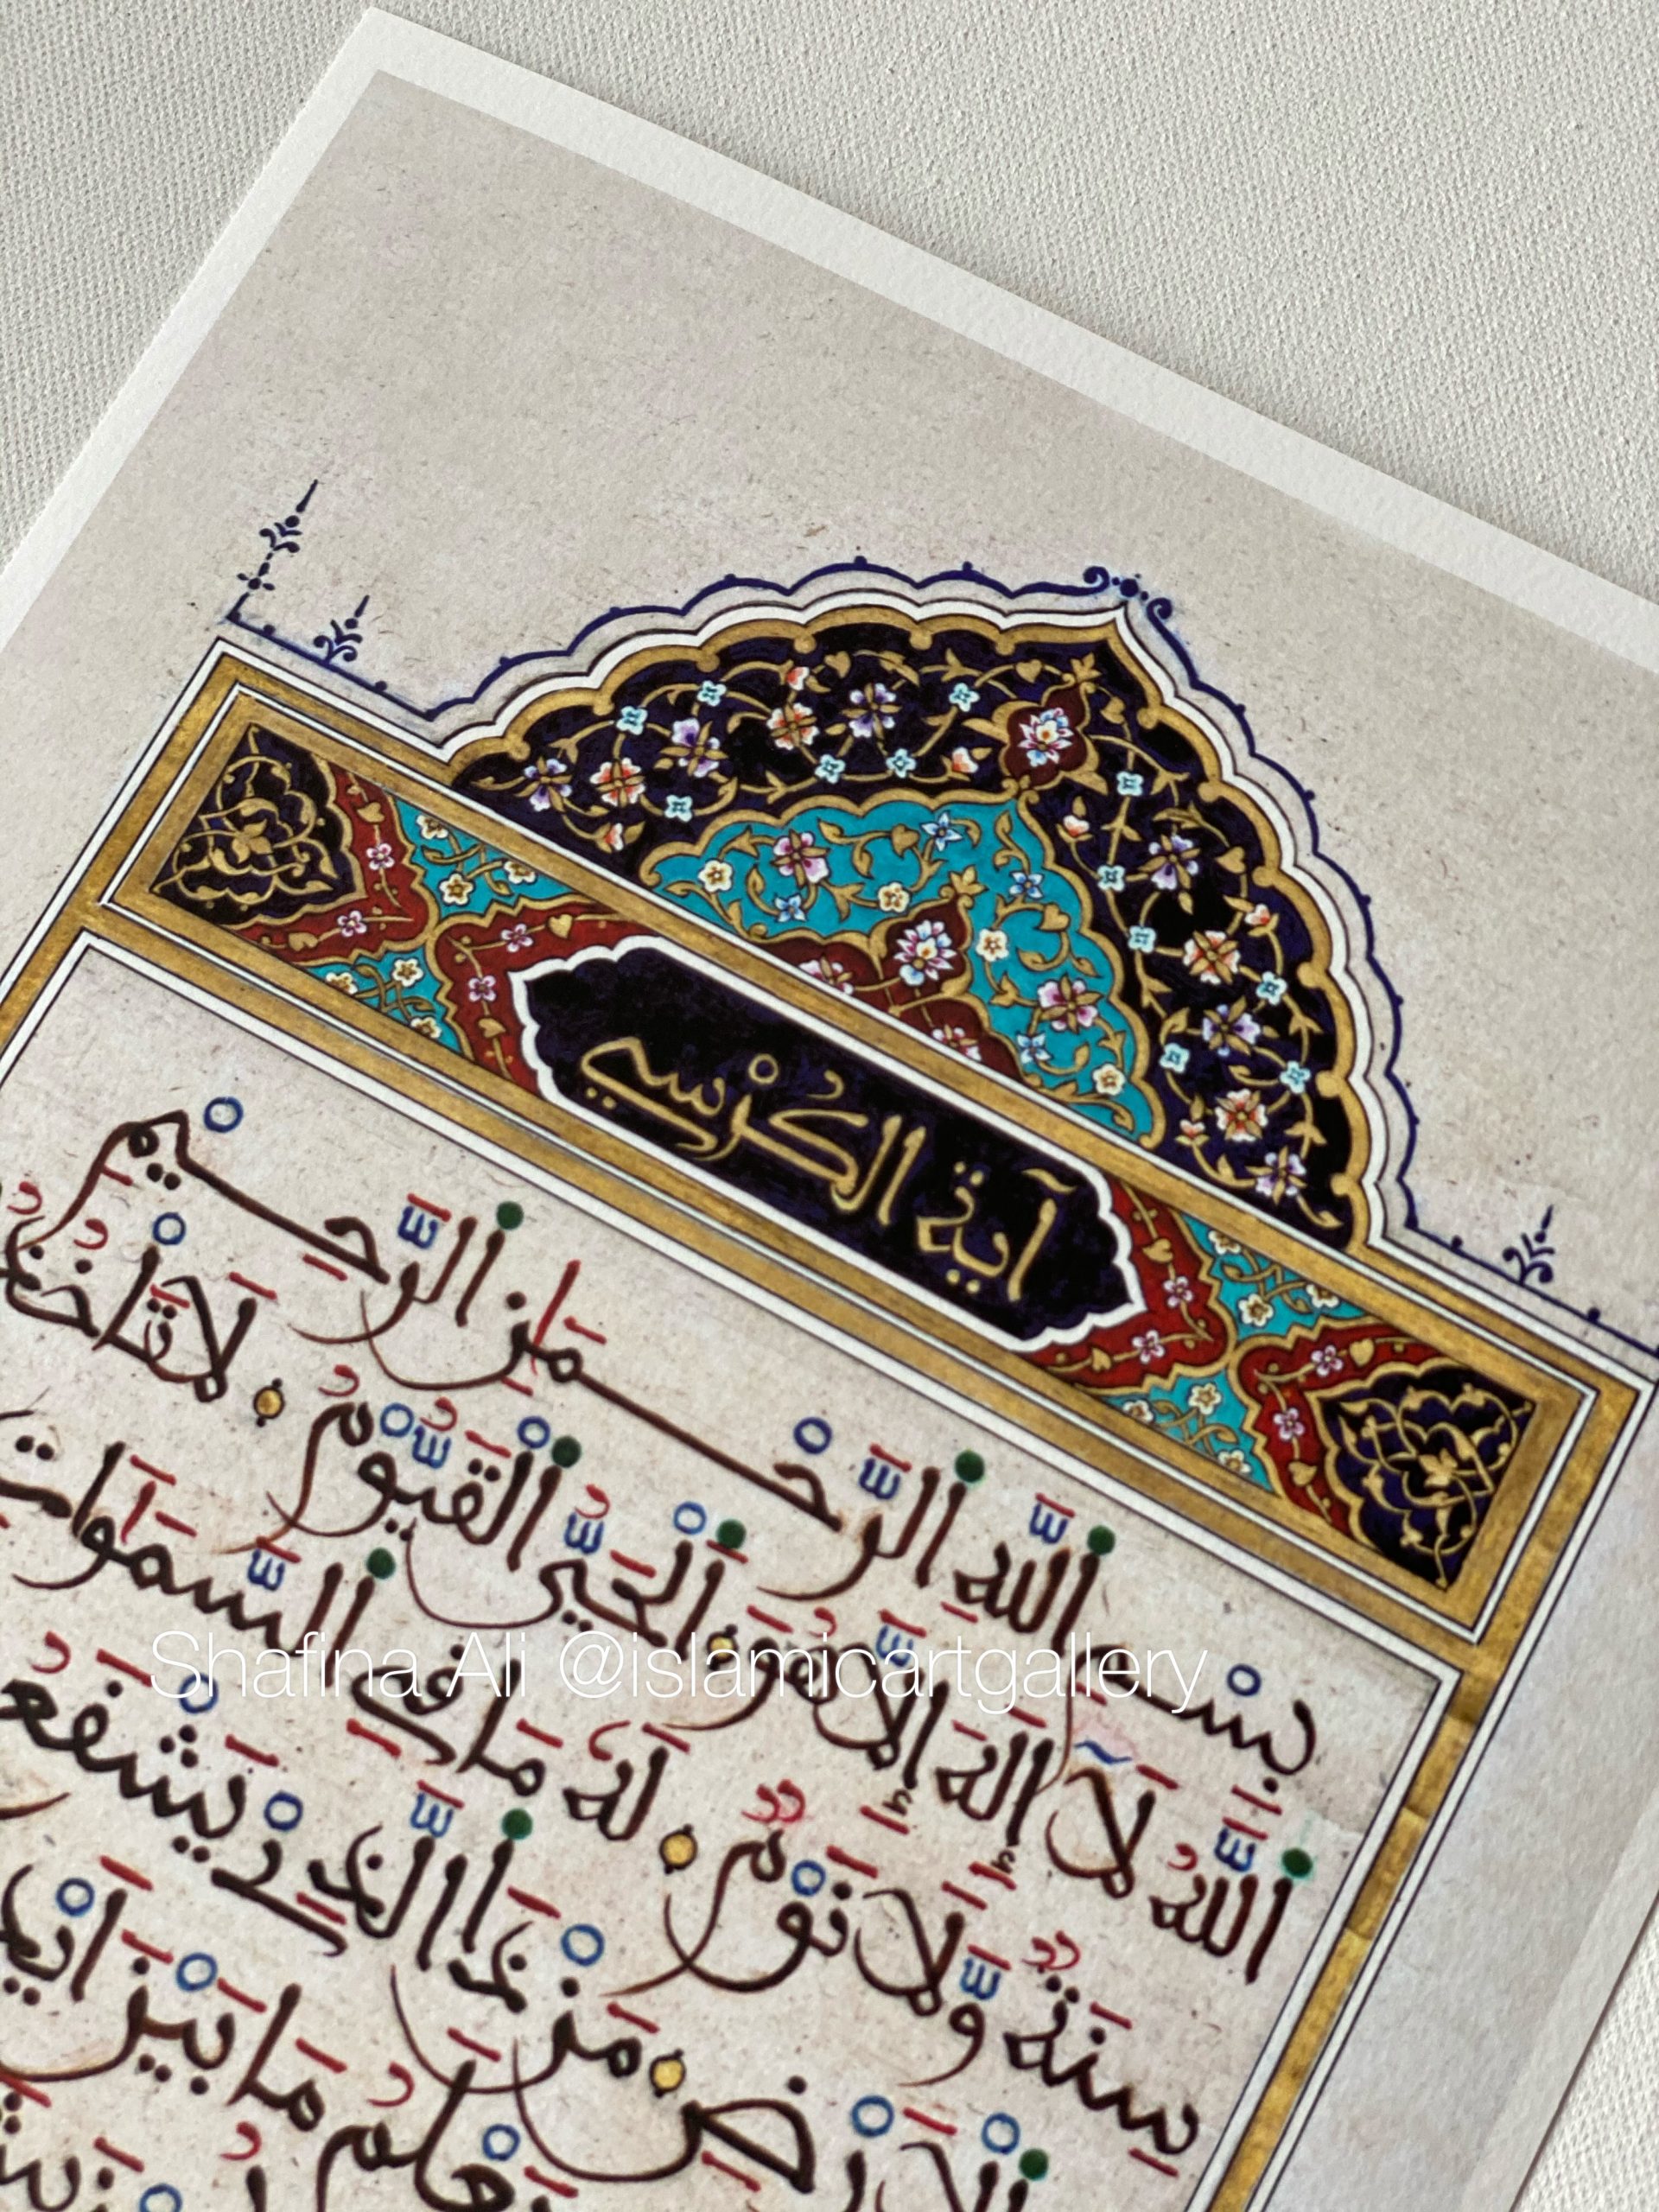 آية الكُرْسي
بِسْمِ اللَّهِ الرَّحْمَٰنِ الرَّحِيمِ
اَللَّهُ لَآ إِلَٰهَ إِلَّا هُوَ اَلْحَيُّ اَلْقَيُّومُ لَا
سِنَةٌ وَّلَا نَوْمٌ لَهُ مَا فِي اَلسَّمَٰوَاتِ
اَلْأَرْضِ مَن ذَا اَلَّذِي يَشْفَعُ
يَعْلَمُ مَا بَيْنَ
Shafina Ali @islamicartgallery